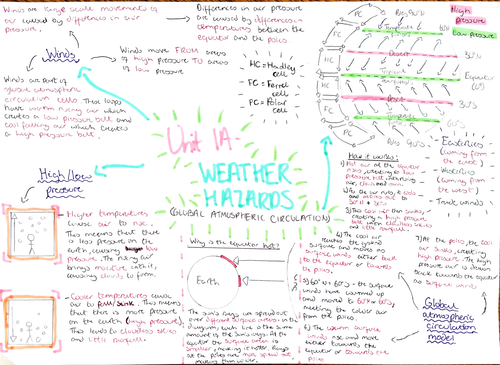 Winds are large scale movements of
air caused by differences in air
pressure.
Differences in air pressure
are caused by differences in
temperatures between the
equator and the poles
Winds
Winds move FROM areas
of high pressure TO areas
of low pressure
Winds are part of
global atmospheric
circulation cells. These loops
have warm rising air which
creates a low pressure belt and
cool falling air which creates
a high pressure belt.
HC = Hadley
cell
FC = Ferrel
cell
PC = Polar
cell
High
pressure
Low pressure
PC
FC
HC
HC
FC
PC
Desert
Desert
60°N
30°N
Equator
(0°)
30°S
60°S
Unit 1A-
WEATHER
HAZARDS
(GLOBAL ATMOSPHERIC CIRCULATION)
- Easterlies
(coming from
the east)
- Westerlies
(coming from
the west)
- Trade winds
High/low
pressure
- Higher temperatures
cause air to rise.
This means that there
is less pressure on the
earth, causing low
pressure. The rising air
brings moisture with it,
causing clouds to form.
- Cooler temperatures cause
air to fall/sink. This means
that there is more pressure
on the earth (high pressure)
This leads to cloudless skies
and little rainfall.
Why is the equator hot?
Earth
The sun's rays are spread out
over different surface areas. in the
diagram, each line is the same
amount of the sun's rays. At the
equator the surface area is
smaller, making it hotter. Rays
at the poles are more spread out
making them colder.
How it works:
1) Hot air at the equator
rises, creating low
pressure
clouds and rain
2) As the air rises, it cools
and moves out to
30°N + 30°S
3) This cool air then sinks,
creating a high pressure
belt with cloudless skies
and little rainfall.
4) The cool air
reaches the ground
surface and moves as
surface winds either back
to the equator or towards
the poles.
5) 60°N + 60°S - the surface
winds have warmed up
and moved to 60°N or 60°S,
meeting the colder air
from the poles.
6) The warm surface
winds rise and move
either towards the
equator or towards the
poles
7) At the poles, the cool
air sinks, creating
high pressure. The high
pressure air is drawn
back towards the equator
as surface winds
Global
atmospheric
circulation
model